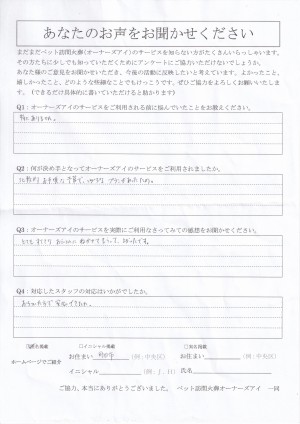 あなたのお声をお聞かせください
まだまだペット訪問火葬(オーナーズアイ)のサービスを知らない方がたくさんいらっしゃいます。
その方たちに少しでも知っていただくためにアンケートにご協力いただけないでしょうか。
あなた様のご意見をお聞かせいただき、今後の活動に反映したいと考えています。よかったこと、
嬉しかったこと、どのような些細なことでもけっこうです。ぜひご協力をよろしくお願いいたしま
す。(できるだけ具体的に書いていただけると助かります)
Q1：オーナーズアイのサービスをご利用される前に悩んでいたことをお教えください。
特にありません。
Q2：何が決め手となってオーナーズアイのサービスをご利用されましたか。
比較的お手頃な予算で、
Q3：オーナーズアイのサービスを実際にご利用なさってみての感想をお聞かせください。
とても
Q4：対応したスタッフの対応はいかがでしたか。
安心できた。
□イニシャル掲載
ホームページでご紹介
お住まい
(例：中央区)
お住まい
(例：中央区)
イニシャル
氏名
ご協力、本当にありがとうございました。 ペット訪問火葬オーナーズアイ 一同